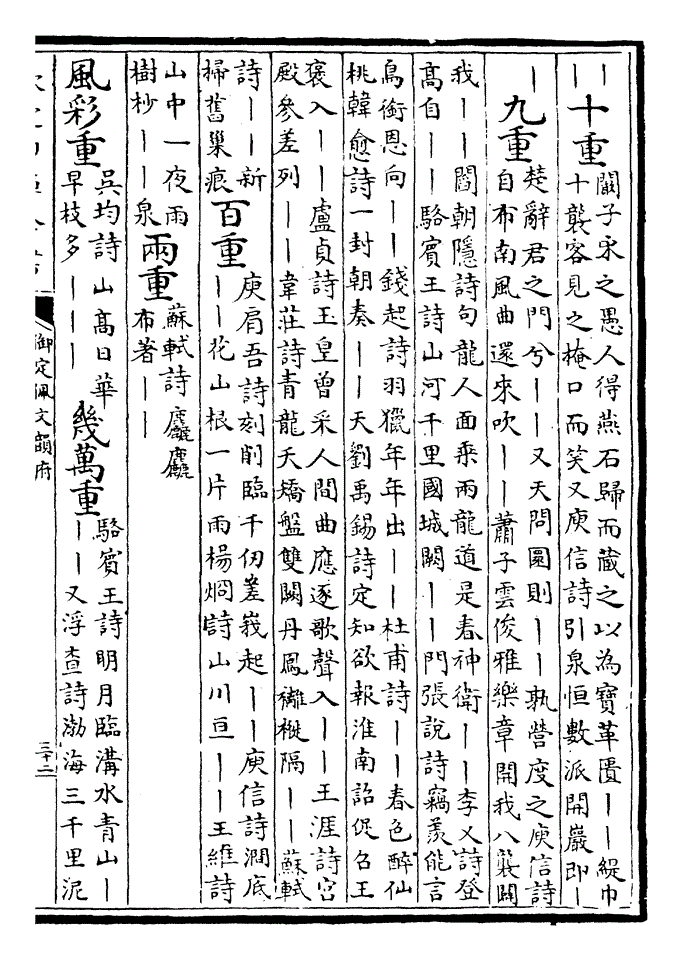 ｜｜十重關子宋之愚人得燕石歸而藏之以為寶革匱｜｜緹巾
十襲客見之掩口而笑又庾信詩引泉恒數派開巖即｜
｜九重楚辭君之門兮｜｜又天問圜則｜｜孰營度之庾信詩
自布南風曲還來吹｜｜蕭子雲俊雅樂章開我八襲闢
我｜｜閻朝隱詩句龍人面乘兩龍道是春神衛｜｜李乂詩登
高自｜｜駱賓王詩山河千里國城闕｜｜門張說詩竊羨能言
鳥銜恩向｜｜錢起詩羽獵年年出｜｜杜甫詩｜｜春色醉仙
桃韓愈詩一封朝奏｜｜天劉禹錫詩定知欲報淮南詔促召王
褒入｜｜盧貞詩玉皇曾采人間曲應逐歌聲入｜｜王涯詩宮
殿參差列｜｜韋莊詩青龍夭矯盤雙闕丹鳳褵褷隔｜｜蘇軾
詩｜｜新
掃舊巢痕
百重庾肩吾詩刻削臨千仞嵳峩起｜｜庾信詩澗底
｜｜花山根一片雨楊烱詩山川亘｜｜王維詩
山中一夜雨
樹杪｜｜泉
兩重蘇軾詩麤麤
布著｜｜
風彩重吳均詩山高日華
早枝多｜｜｜
幾萬重駱賓王詩明月臨溝水青山｜
｜｜又浮查詩渤海三千里泥
御定佩文韻府
三十二